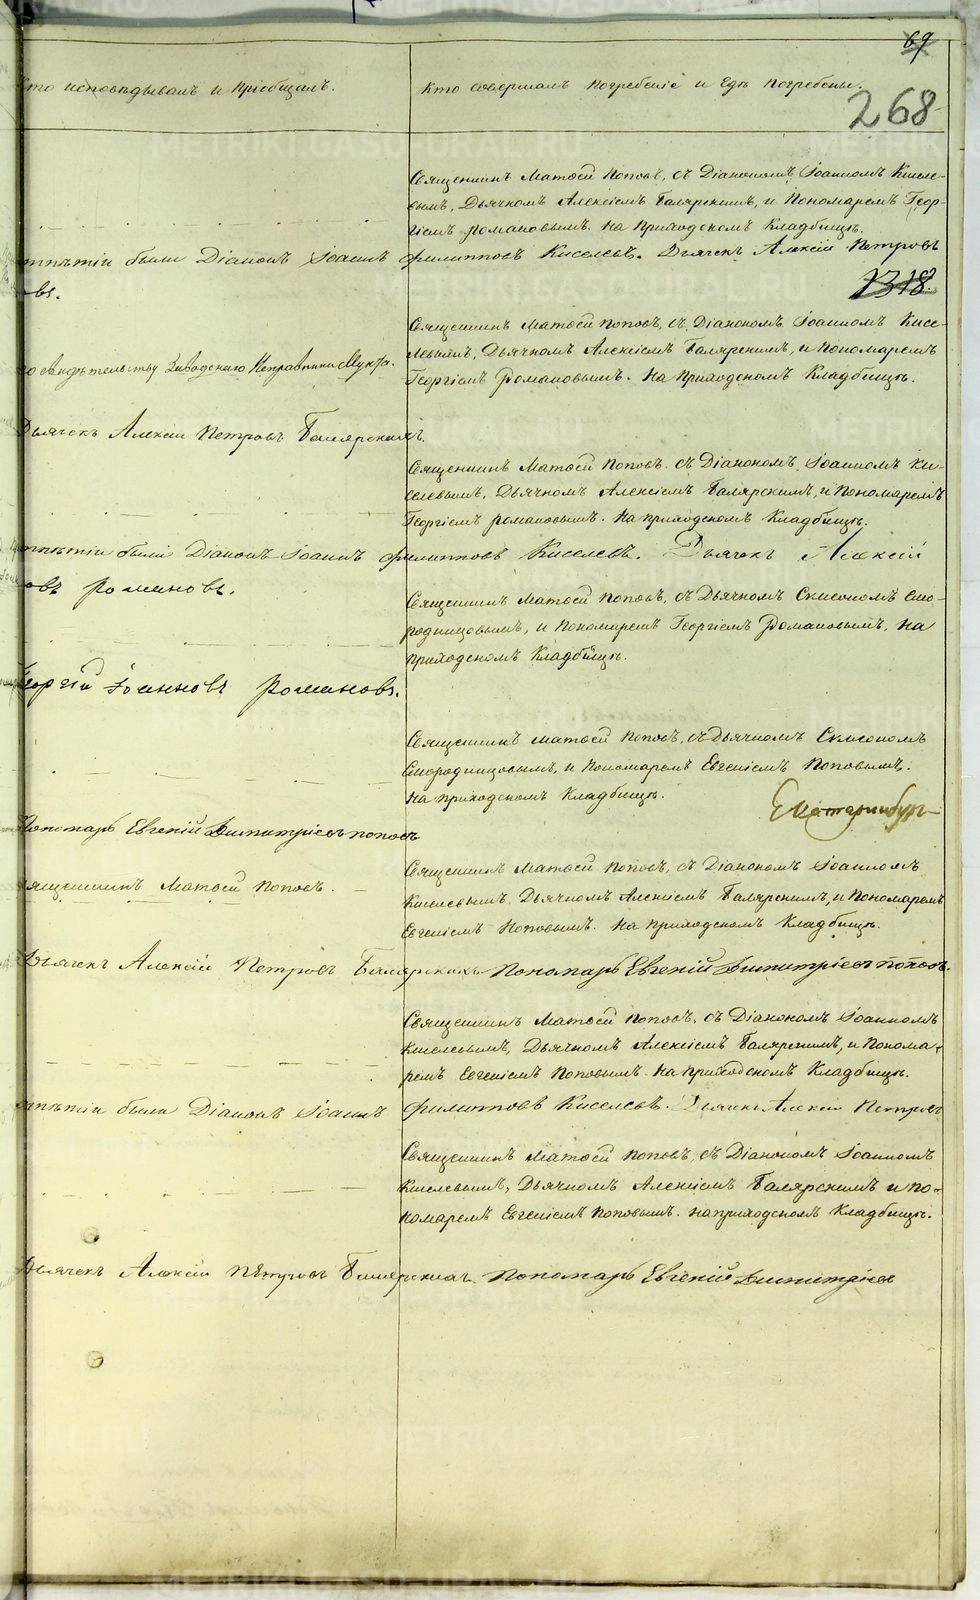 69
Кто исповѣдывалъ и Пріобщалъ.
Кто совершалъ Погребеніе и Гдѣ Погребены.
268
Священникъ Матѳей Поповъ, съ Діакономъ Іоанномъ Киселе-
вымъ, Дьячкомъ Алексіемъ Балярскимъ, и Пономаремъ Геор-
гіемъ Романовымъ. На Приходскомъ Кладбищѣ.
отпѣтіи были Діаконъ Іоаннъ Филипповъ Киселевъ. Дьячекъ Алексій Петровъ
овъ.
1318
Священникъ Матѳей Поповъ, съ Діакономъ Іоанномъ Кисе-
левымъ, Дьячкомъ Алексіемъ Балярскимъ, и Пономаремъ
по свидѣтельству Заводскаго Исправника
Георгіемъ Романовымъ. На Приходскомъ Кладбищѣ.
Дьячекъ Алексій Петровъ Балярскихъ.
Священникъ Матѳей Поповъ. съ Діакономъ Іоанномъ Ки-
селевымъ, Дьячкомъ Алексіемъ Балярскимъ, и Пономаремъ
Георгіемъ Романовымъ. На приходскомъ Кладбищѣ.
отпѣтіи были Діаконъ Іоаннъ Филипповъ Киселевъ. Дьячекъ Алексій
овъ Романовъ.
Священникъ Матѳей Поповъ, съ Дьячкомъ Смо-
родинцовымъ, и Пономаремъ Георгіемъ Романовымъ, На
приходскомъ Кладбищѣ.
Георгій Іоанновъ Романовъ.
Священникъ Матѳей Поповъ, съ Дьячкомъ
Смородинцовымъ, и Пономаремъ Евгеніемъ Поповымъ.
На приходскомъ Кладбищѣ.
Екатеринбург
Пономарь Евгеній Димитріевъ Поповъ
Священникъ Матѳей Поповъ, съ Діакономъ Іоанномъ
Священникъ Матѳей Поповъ.
Киселевымъ, Дьячкомъ Алексіемъ Балярскимъ, и Пономаремъ
Евгеніемъ Поповымъ. На приходскомъ Кладбищѣ.
Дьячекъ Алексій Петровъ Балярскихъ Пономарь Евгеній Димитріевъ Поповъ.
Священникъ Матѳей Поповъ, съ Діакономъ Іоанномъ
Киселевымъ, Дьячкомъ Алексіемъ Балярскимъ, и Понома-
ремъ Евгеніемъ Поповымъ. На приходскомъ Кладбищѣ.
отпѣтіи были Діаконъ Іоаннъ Филипповъ Киселевъ. Дьячекъ Алексій Петровъ
Священникъ Матѳей Поповъ, съ Діакономъ Іоанномъ
Киселевымъ, Дьячкомъ Алексіемъ Балярскимъ и По-
номаремъ Евгеніемъ Поповымъ. на приходскомъ Кладбищѣ.
Дьячекъ Алексій Петровъ Балярскихъ. Пономарь Евгеній Димитріев
METRIKI.GASO-URAL.RU